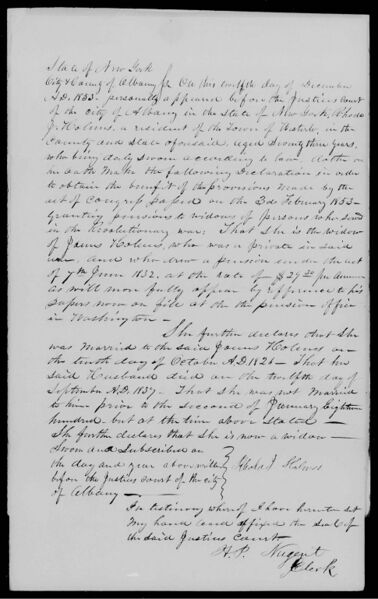 State of New York
City & County of Albany ss On this twelfth day of December
A.D. 1853. personally appeared before the Justices Court
of the city of Albany in the State of New York, Rhoda
J. Holmes, a resident of the Town of Westerlo, in the
County and State aforesaid, aged Seventy three years,
who being duly sworn according to law, doth on
his oath make the following Declaration in order
to obtain the benefit of the provisions made by the
act of Congress passed on the 3d February 1853
Granting pensions to widows of persons who served
in the Revolutionary war: That she is the widow
of James Holmes, who was a private in said
war, and who drew a pension under the act
of 7th June 1832, at the rate of $29 per Annum
as will more fully appear by reference to his
papers now on file at the pension office
in Washington
She further declares that She
was married to the said James Holmes on
the tenth day of October A.D. 1826 - That her
said Husband died on the twelfth day of
September A.D. 1837. - That she was not married
to him prior to the second of January Eighteen
hundred - but at the time above stated -
She further declares that She is now a widow -
Sworn and Subscribed on
the day and year above written Rhoda J Holmes
before the Justices Court of the city
of Albany
In testimony whereof I have hereunto set
My hand and affixed the Seal of
the said Justices Court
H. P. Nugent
Clerk